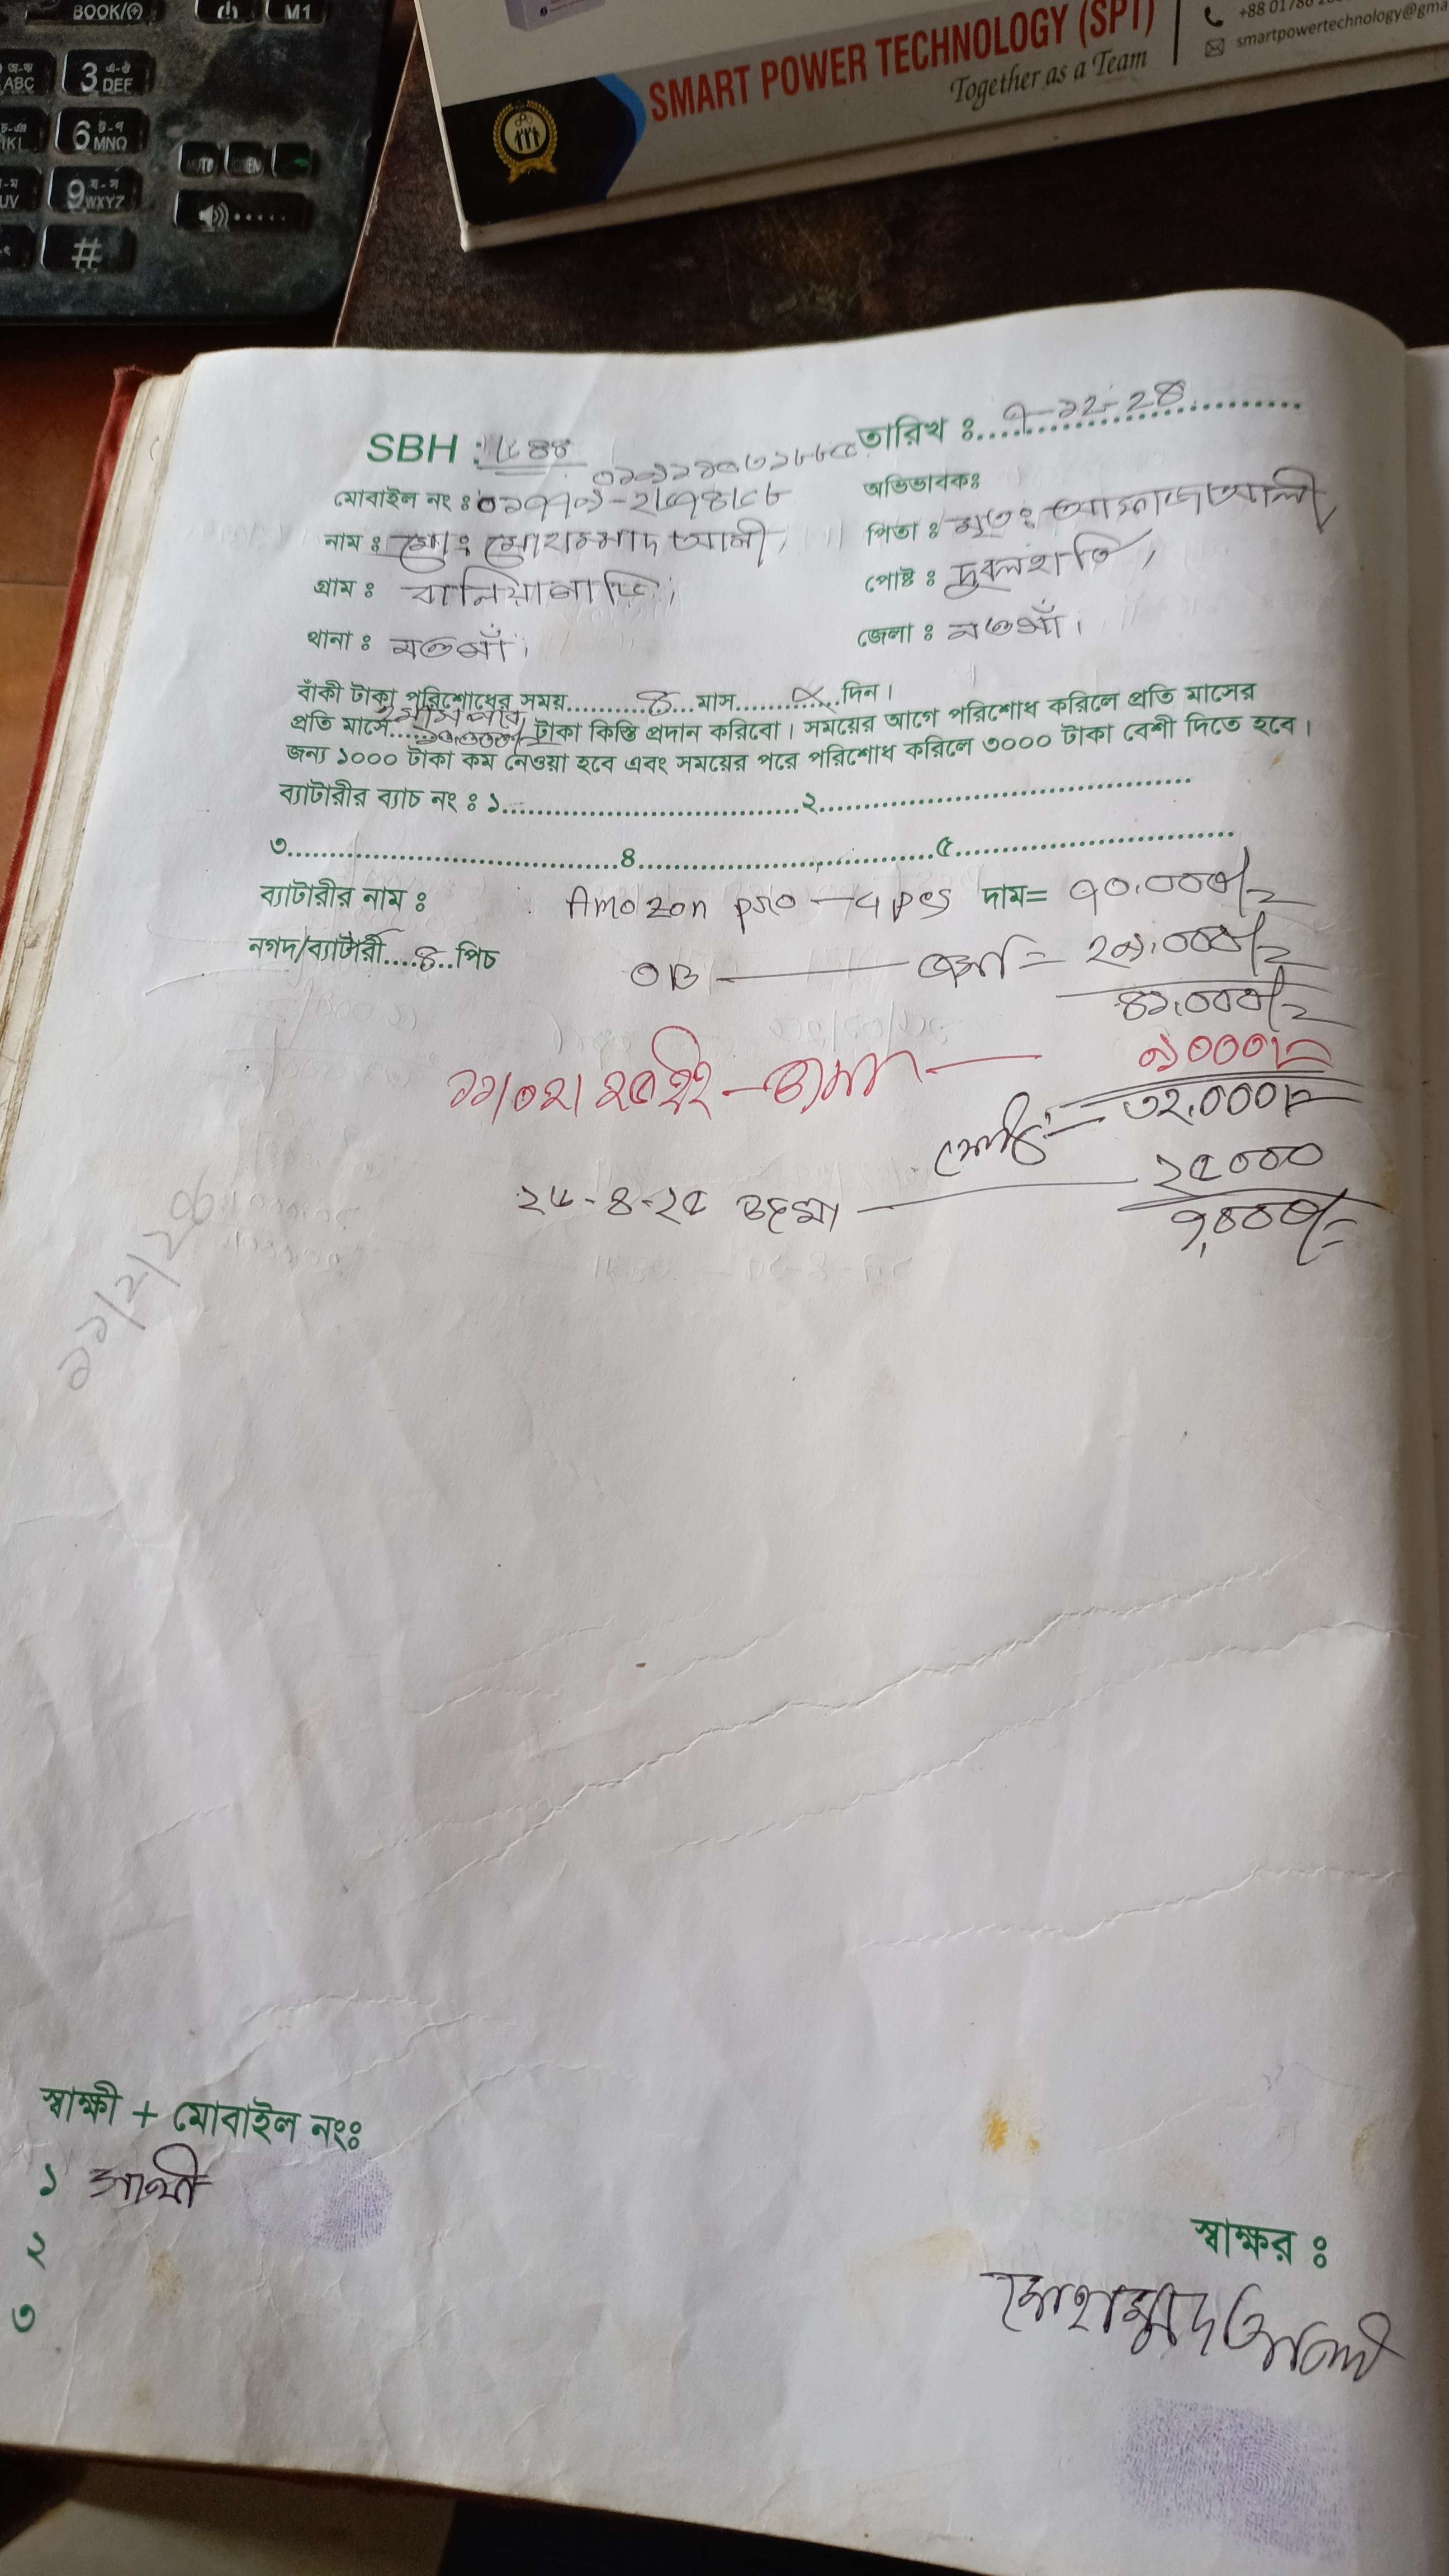 BOOK/ M1
ABC 3 DEF
6 MNO
9 WXYZ
#
SMART POWER TECHNOLOGY (SPT)
Together as a Team
+88 01786
smartpowertechnology@gma
SBH : ৮৪৪ তারিখ ঃ ৭-১২-২৪
মোবাইল নং ঃ অভিভাবকঃ
নাম ঃ মোঃ মোহাম্মাদ আলী, পিতা ঃ মৃতঃ আক্কাজ আলী,
গ্রাম ঃ পোষ্ট ঃ দুবলহাটি,
থানা ঃ নওগাঁ। জেলা ঃ নওগাঁ।
বাঁকী টাকা পরিশোধের সময়..........৪...মাস..........×...দিন।
প্রতি মাসে.......... টাকা কিস্তি প্রদান করিবো। সময়ের আগে পরিশোধ করিলে প্রতি মাসের
জন্য ১০০০ টাকা কম নেওয়া হবে এবং সময়ের পরে পরিশোধ করিলে ৩০০০ টাকা বেশী দিতে হবে।
ব্যাটারীর ব্যাচ নং ঃ ১..............................২..............................
৩..............................৪..............................৫..............................
ব্যাটারীর নাম ঃ Amozon pro - 4 pcs দাম= ৭০,০০০/=
নগদ/ব্যাটারী....৪..পিচ OB — জমা = ২৯,০০০/=
৪১,০০০/=
১১/০২/২৫ইং - জমা — ৯০০০/=
৩২,০০০/=
২৬-৪-২৫ জমা — ২৫০০০
৭,০০০/=
১১/২/২৫
স্বাক্ষী + মোবাইল নংঃ
১ সাথী
২
৩
স্বাক্ষর ঃ
মোহাম্মাদ আলী